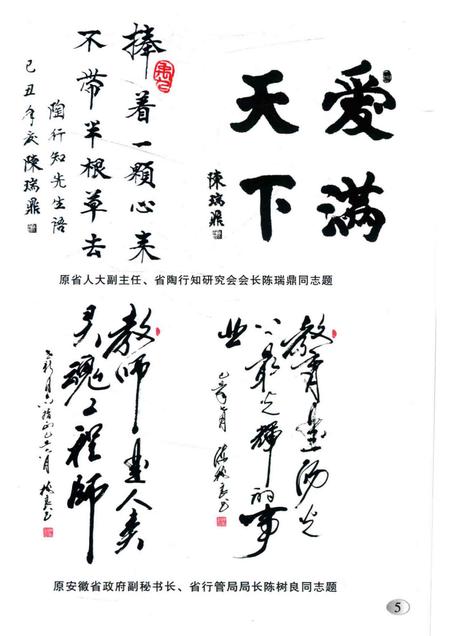 愛满
天下
陳瑞鼎
捧着一顆心来
不带半根草去
陶行知先生语
己丑年夏陳瑞鼎
原省人大副主任、省陶行知研究会会长陈瑞鼎同志题
教育是阳光
下最光輝的事
业
教師是人类
灵魂工程師
原安徽省政府副秘书长、省行管局局长陈树良同志题
5